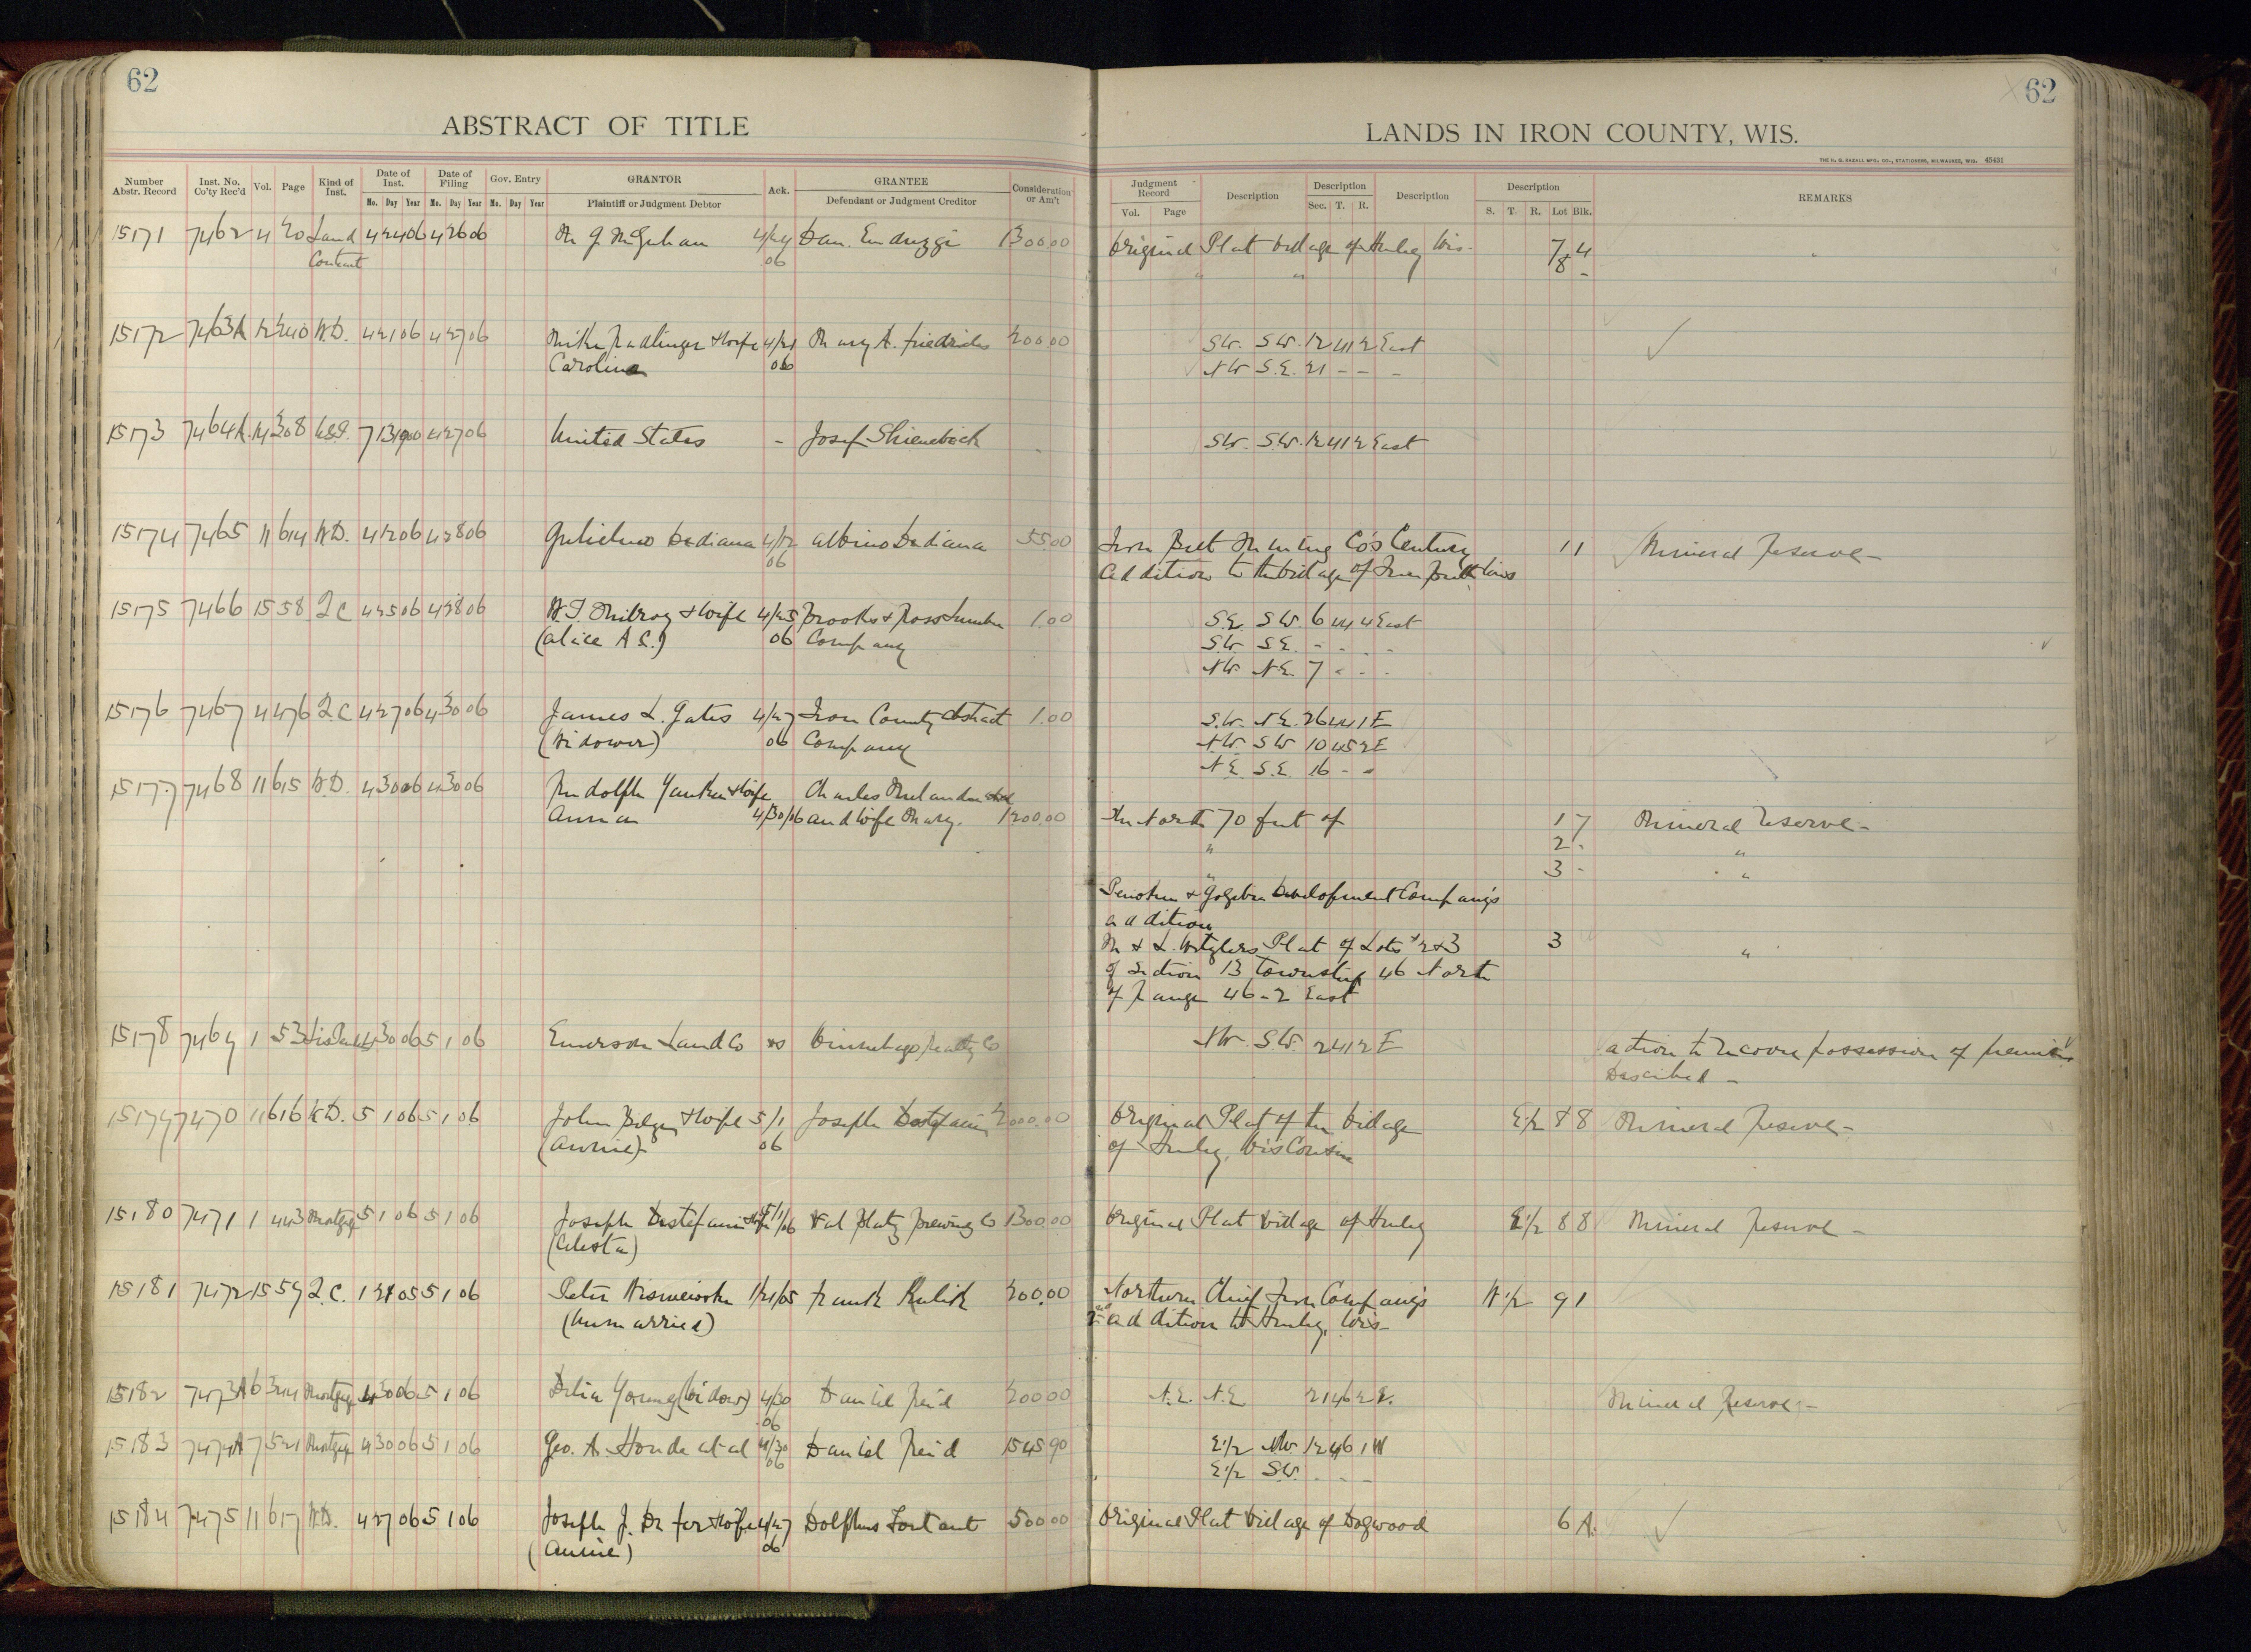 62
ABSTRACT OF TITLE
Number Abstr. Record Inst. No. Co'ty Rec'd Vol. Page Kind of Inst. Date of Inst. Date of Filing Gov. Entry GRANTOR Ack. GRANTEE Consideration or Am't
Mo. Day Year Mo. Day Year Mo. Day Year Plaintiff or Judgment Debtor Defendant or Judgment Creditor
15171 7462 4 20 Land 4 24 06 4 26 06 4/24 Dan. 1300.00
Contract 06
15172 7463A 12 240 W.D. 4 21 06 4 27 06 Mike & Wife 4/21 Mary A. Friedrichs 200.00
Caroline 06
15173 7464A 14 308 U.S.P. 7 13 1900 4 27 06 United States - Josef
15174 7465 11 614 W.D. 4 12 06 4 28 06 Gulielmo Dadiana 4/12 Albino Dadiana 55.00
06
15175 7466 15 58 Q C 4 25 06 4 28 06 W.J. & Wife 4/25 Brooks & Ross Lumber 1.00
(Alice A S.) 06 Company
15176 7467 4 476 Q C 4 27 06 4 30 06 James L. Gates 4/27 Iron County Abstract 1.00
(Widower) 06 Company
15177 7468 11 615 W.D. 4 30 06 4 30 06 Rudolph & Wife Charles
4/30/06 and Wife Mary. 1200.00
15178 7469 1 53 4 30 06 5 1 06 Emerson Land Co vs Winnebago Realty Co
15179 7470 11 616 W.D. 5 1 06 5 1 06 John & Wife 5/1 Joseph 2000.00
(Annie) 06
15180 7471 1 443 Mortgage 5 1 06 5 1 06 Joseph Destefanis & Wife 5/1/06 Val Blatz Brewing Co 1300.00
(Celesta)
15181 7472 15 59 Q.C. 1 21 05 5 1 06 Peter 1/21/05 Frank Kulik 200.00
(Unmarried)
15182 7473A 6 344 Mortgage 4 30 06 5 1 06 Delia Young (Widow) 4/30 Daniel Reid 200.00
06
15183 7474A 7 521 Mortgage 4 30 06 5 1 06 Geo. A. et al 4/30 Daniel Reid 1545.90
06
15184 7475 11 617 W.D. 4 27 06 5 1 06 Joseph J. & Wife 4/27 Dolphus 500.00
(Annie) 06
62
LANDS IN IRON COUNTY, WIS.
THE H. G. RAZALL MFG. CO., STATIONERS, MILWAUKEE, WIS. 45431
Judgment Record Description Description Description Description REMARKS
Vol. Page Sec. T. R. S. T. R. Lot Blk.
Original Plat Village of Hurley Wis. 7 4
" " 8 -
SW. SW. 12 41 2 East
NW S.E. 21 - - -
SW. SW. 12 41 2 East
Iron Belt Mining Co's Century 11 Mineral Reserve -
Addition to the Village of Iron Belt Wis
S.E. SW. 6 44 4 East
SW. S.E. - - -
NW. N.E. 7 - - -
S.W. N.E. 26 44 1 E
NW. SW 10 45 2 E
N.E. S.E. 16 - -
The North 70 feet of 1 7 Mineral Reserve -
" 2 - "
" 3 - "
Penokee & Gogebic Development Company's
addition
M & L. Plat of Lots 2 & 3 3 "
of Section 13 Township 46 North
of Range 46-2 East
NW. SW. 2 41 2 E action to recover possession of premises
Described -
Original Plat of the Village E 1/2 8 8 Mineral Reserve -
of Hurley, Wisconsin
Original Plat Village of Hurley E 1/2 8 8 Mineral Reserve -
Northern Chief Iron Company's W 1/2 9 1
2nd addition to Hurley, Wis -
N.E. N.E 21 46 2 E. Mineral Reserve -
E 1/2 NW. 12 46 1 W
E 1/2 S.W. - - -
Original Plat Village of Dogwood 6 A.